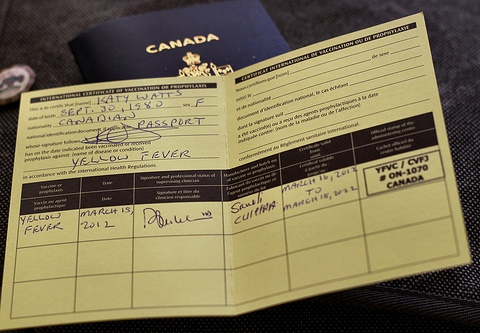 CANADA
INTERNATIONAL CERTIFICATE OF VACCINATION OR PROPHYLAXIS
This is to certify that [name] KATY WATTS
date of birth SEPT. 30, 1980 sex F
nationality CANADIAN
national identification document, if applicable PASSPORT
whose signature follows
has on the date indicated been vaccinated or received
prophylaxis against: (name of disease or condition)
YELLOW FEVER
in accordance with the International Health Regulations.
Vaccine or prophylaxis
Date
Signature and professional status of supervising clinician
Vaccin ou agent prophylactique
Date
Signature et titre du clinicien responsable
YELLOW FEVER
MARCH 15, 2012
CERTIFICAT INTERNATIONAL DE VACCINATION OU DE PROPHYLAXIE
Nous certifions que [nom]
né(e) le
de sexe
et de nationalité
document d'identification national, le cas échéant
dont la signature suit
a été vacciné(e) ou a reçu des agents prophylactiques à la date
indiquée: (nom de la maladie ou de l'affection)
conformément au Règlement sanitaire international.
Manufacturer and batch no. of vaccine or prophylaxis
Certificate valid until
Official stamp of the administering centre
Certificat valable à partir du
Cachet officiel du centre habilité
Sanofi
MARCH 16, 2012
TO
MARCH 15, 2022
YFVC / CVFJ
# ON-1070
CANADA